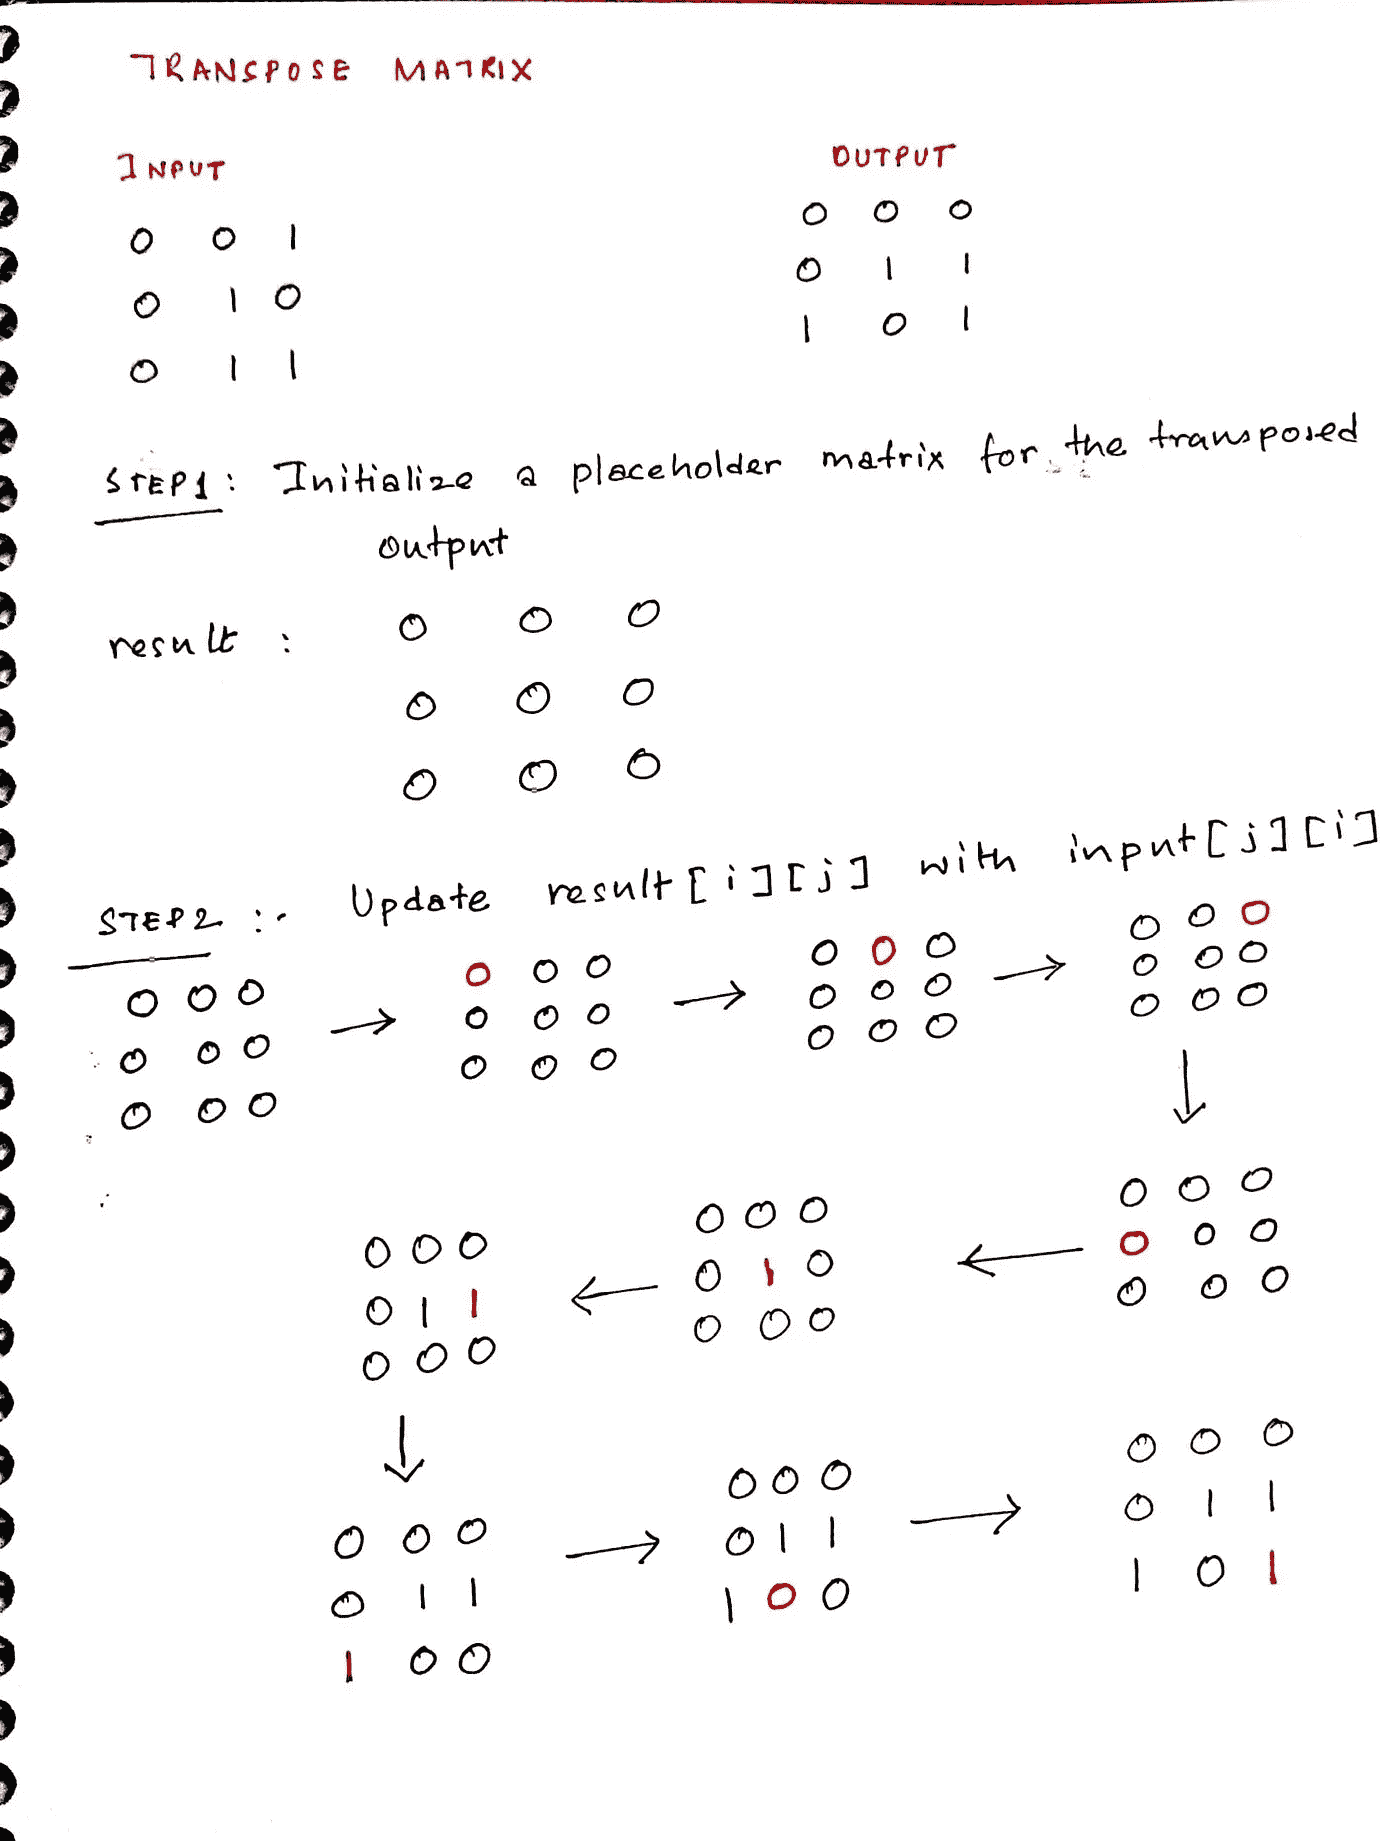 TRANSPOSE MATRIX
INPUT
0 0 1
0 1 0
0 1 1
OUTPUT
0 0 0
0 1 1
1 0 1
STEP1: Initialize a placeholder matrix for the transposed
output
result :
0 0 0
0 0 0
0 0 0
STEP2 :- Update result[i][j] with input[j][i]
0 0 0
0 0 0
0 0 0
→
0 0 0
0 0 0
0 0 0
→
0 0 0
0 0 0
0 0 0
→
0 0 0
0 0 0
0 0 0
↓
0 0 0
0 0 0
0 0 0
←
0 0 0
0 1 0
0 0 0
←
0 0 0
0 1 1
0 0 0
↓
0 0 0
0 1 1
1 0 0
→
0 0 0
0 1 1
1 0 0
→
0 0 0
0 1 1
1 0 1